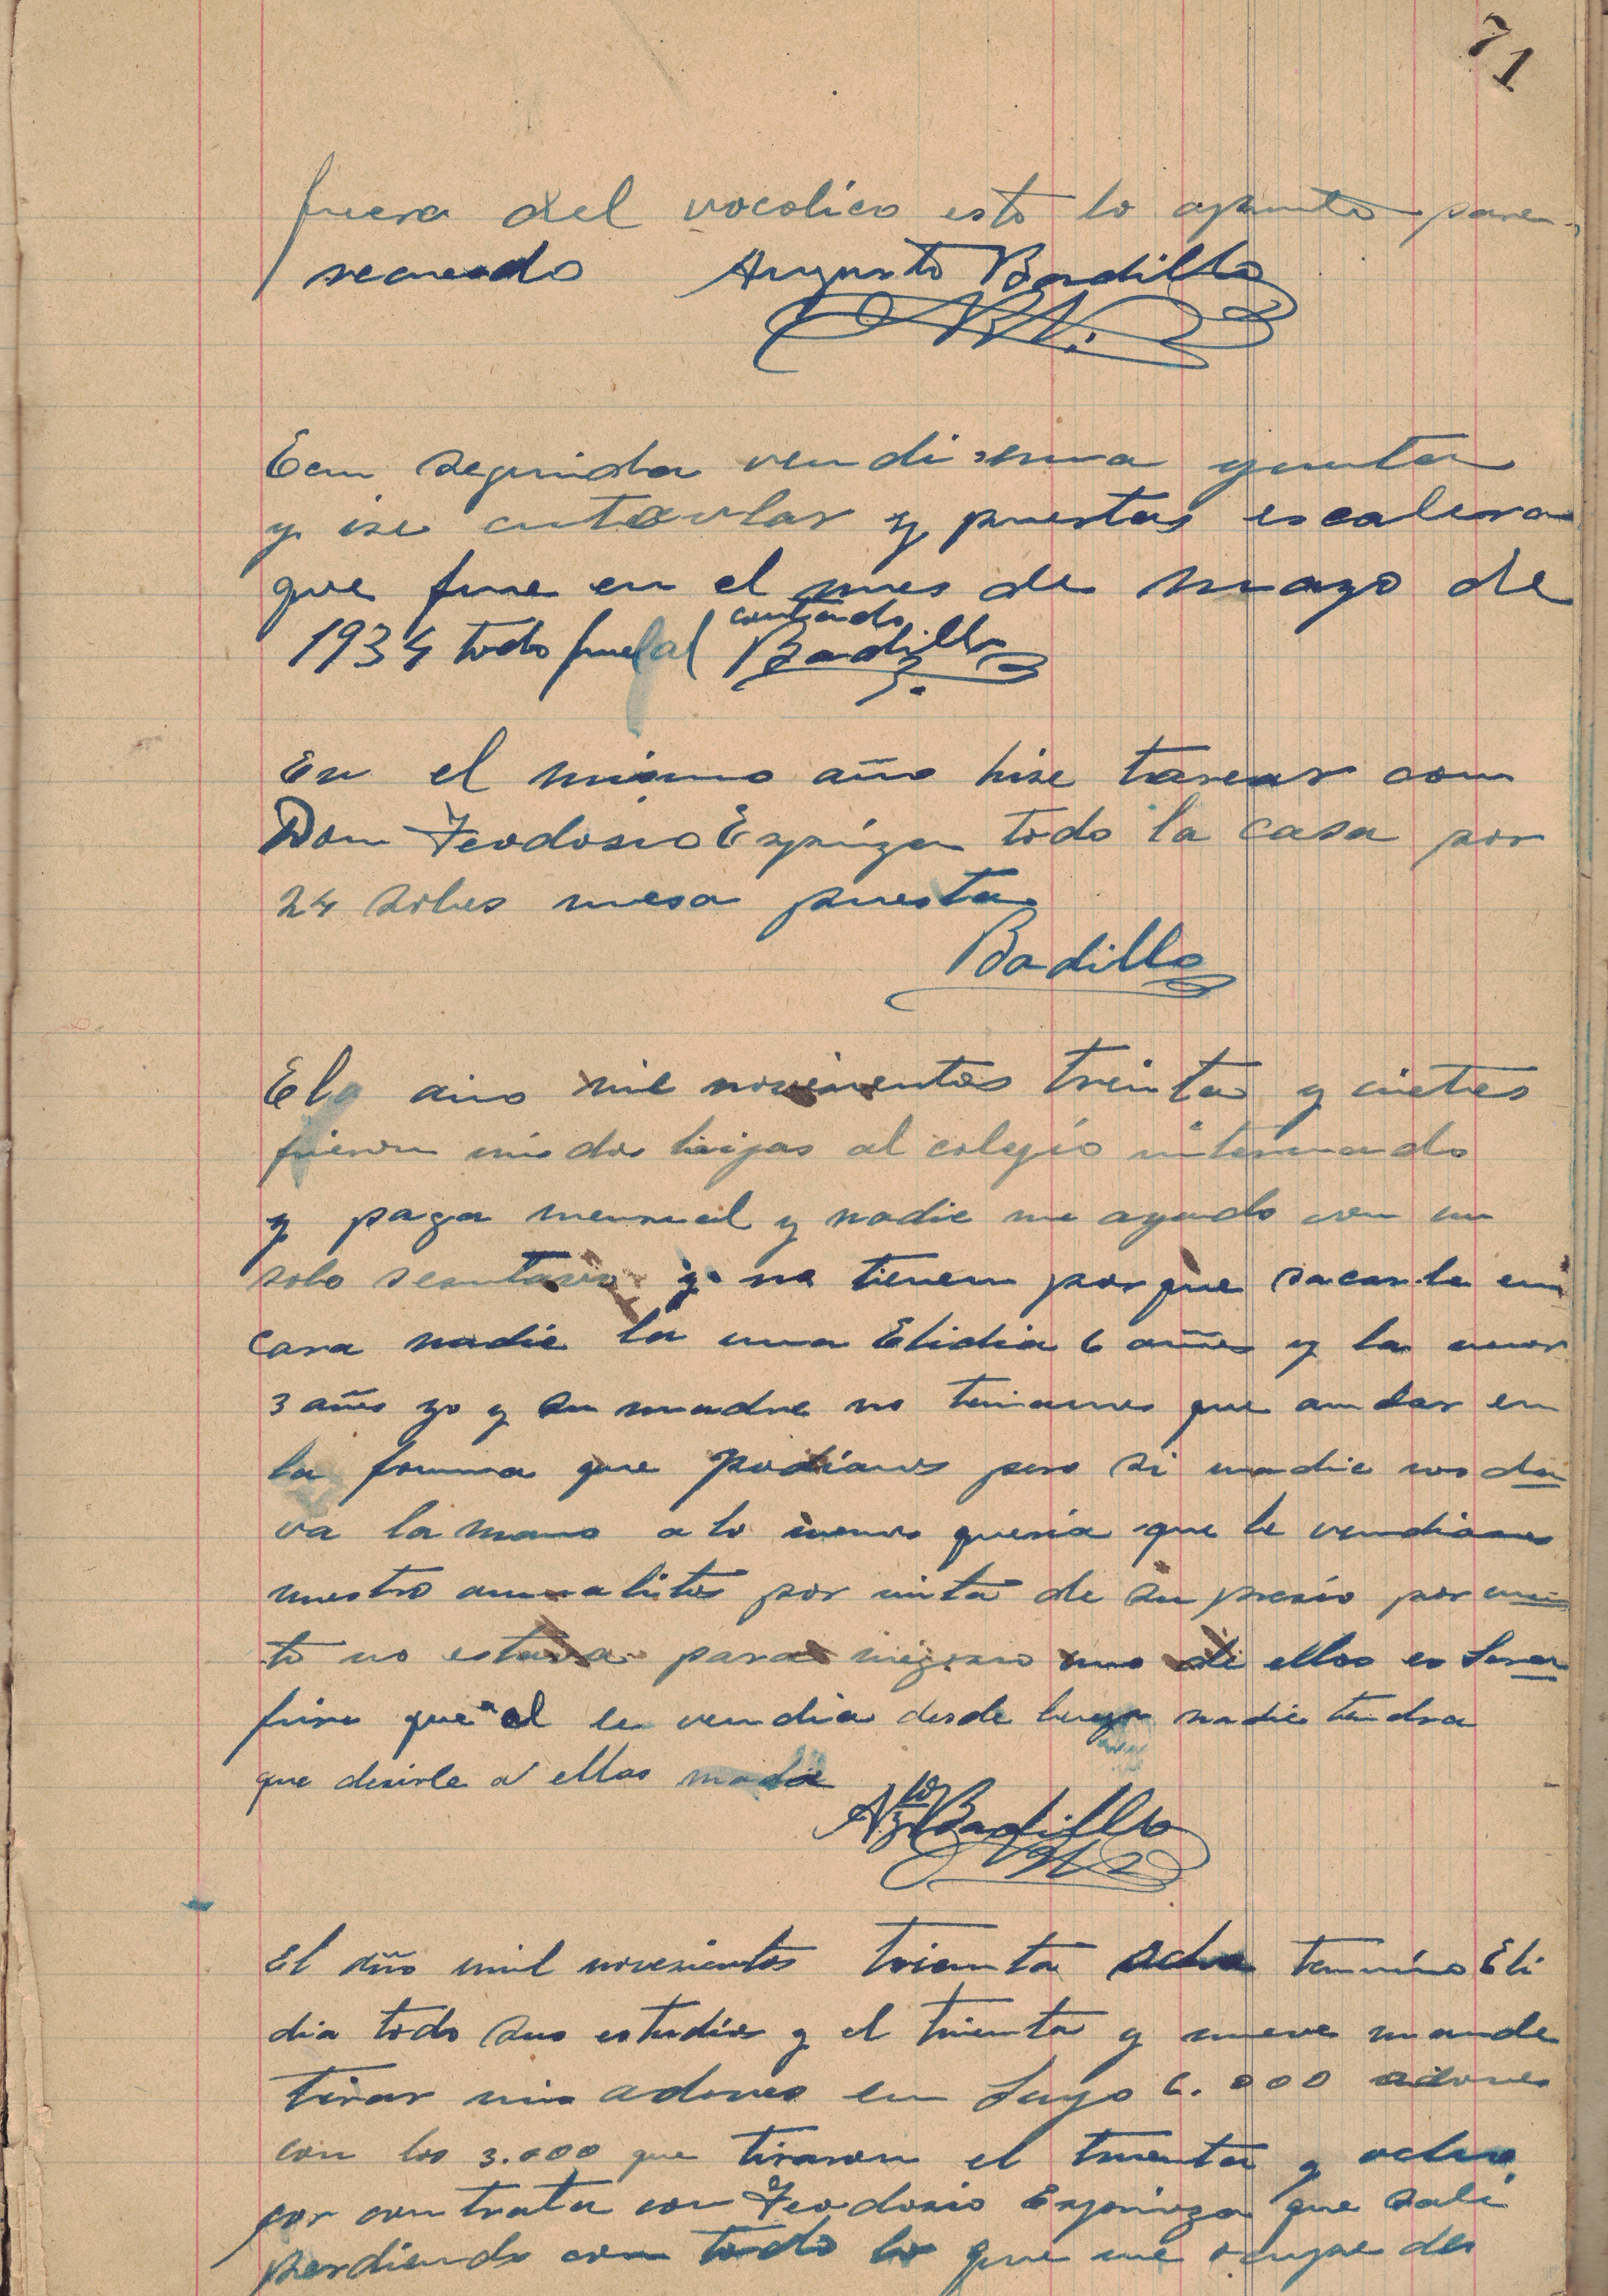 71
fuera del vocolico esto lo apunto para
recuerdo Augusto Badillo
Een seguida vendi una yunta
y ise entavlar y puertas escalera
que fue en el mes de mayo de
contado
1934 todo fue al Badillo
En el mismo año hise tarear con
Don Teodosio Espinza todo la casa por
24 soles mesa puesta
Badillo
El año mil novecientos treinta y cietes
fueron mis dos hijas al colegio internado
y paga mensual y nadie me ayudo con un
solo sentavo y no tienem por que sacarle en
cara nadie la una Elidia 6 años y la menor
3 años yo y su madre no teniamos que andar en
la forma que podiamos pero si nadie nos da
va la mano a lo menos queria que le vendiamos
nuestro animalitos por mita de su presio por
to no estava para ninguno uno de ellos es Sera
fino que el le vendia desde luego nadie tendra
que desirle a ellas nadie
Agto Badillo
El año mil novesientos trienta ocho termino Eli
dia todo sus estudios y el trienta y nueve mande
tirar mis adoves en Suyo 6.000 adoves
con los 3.000 que tiraron el trienta y ocho
por contrata con Teodosio Espinoza que sali
perdiendo con todo lo que me ocupe des